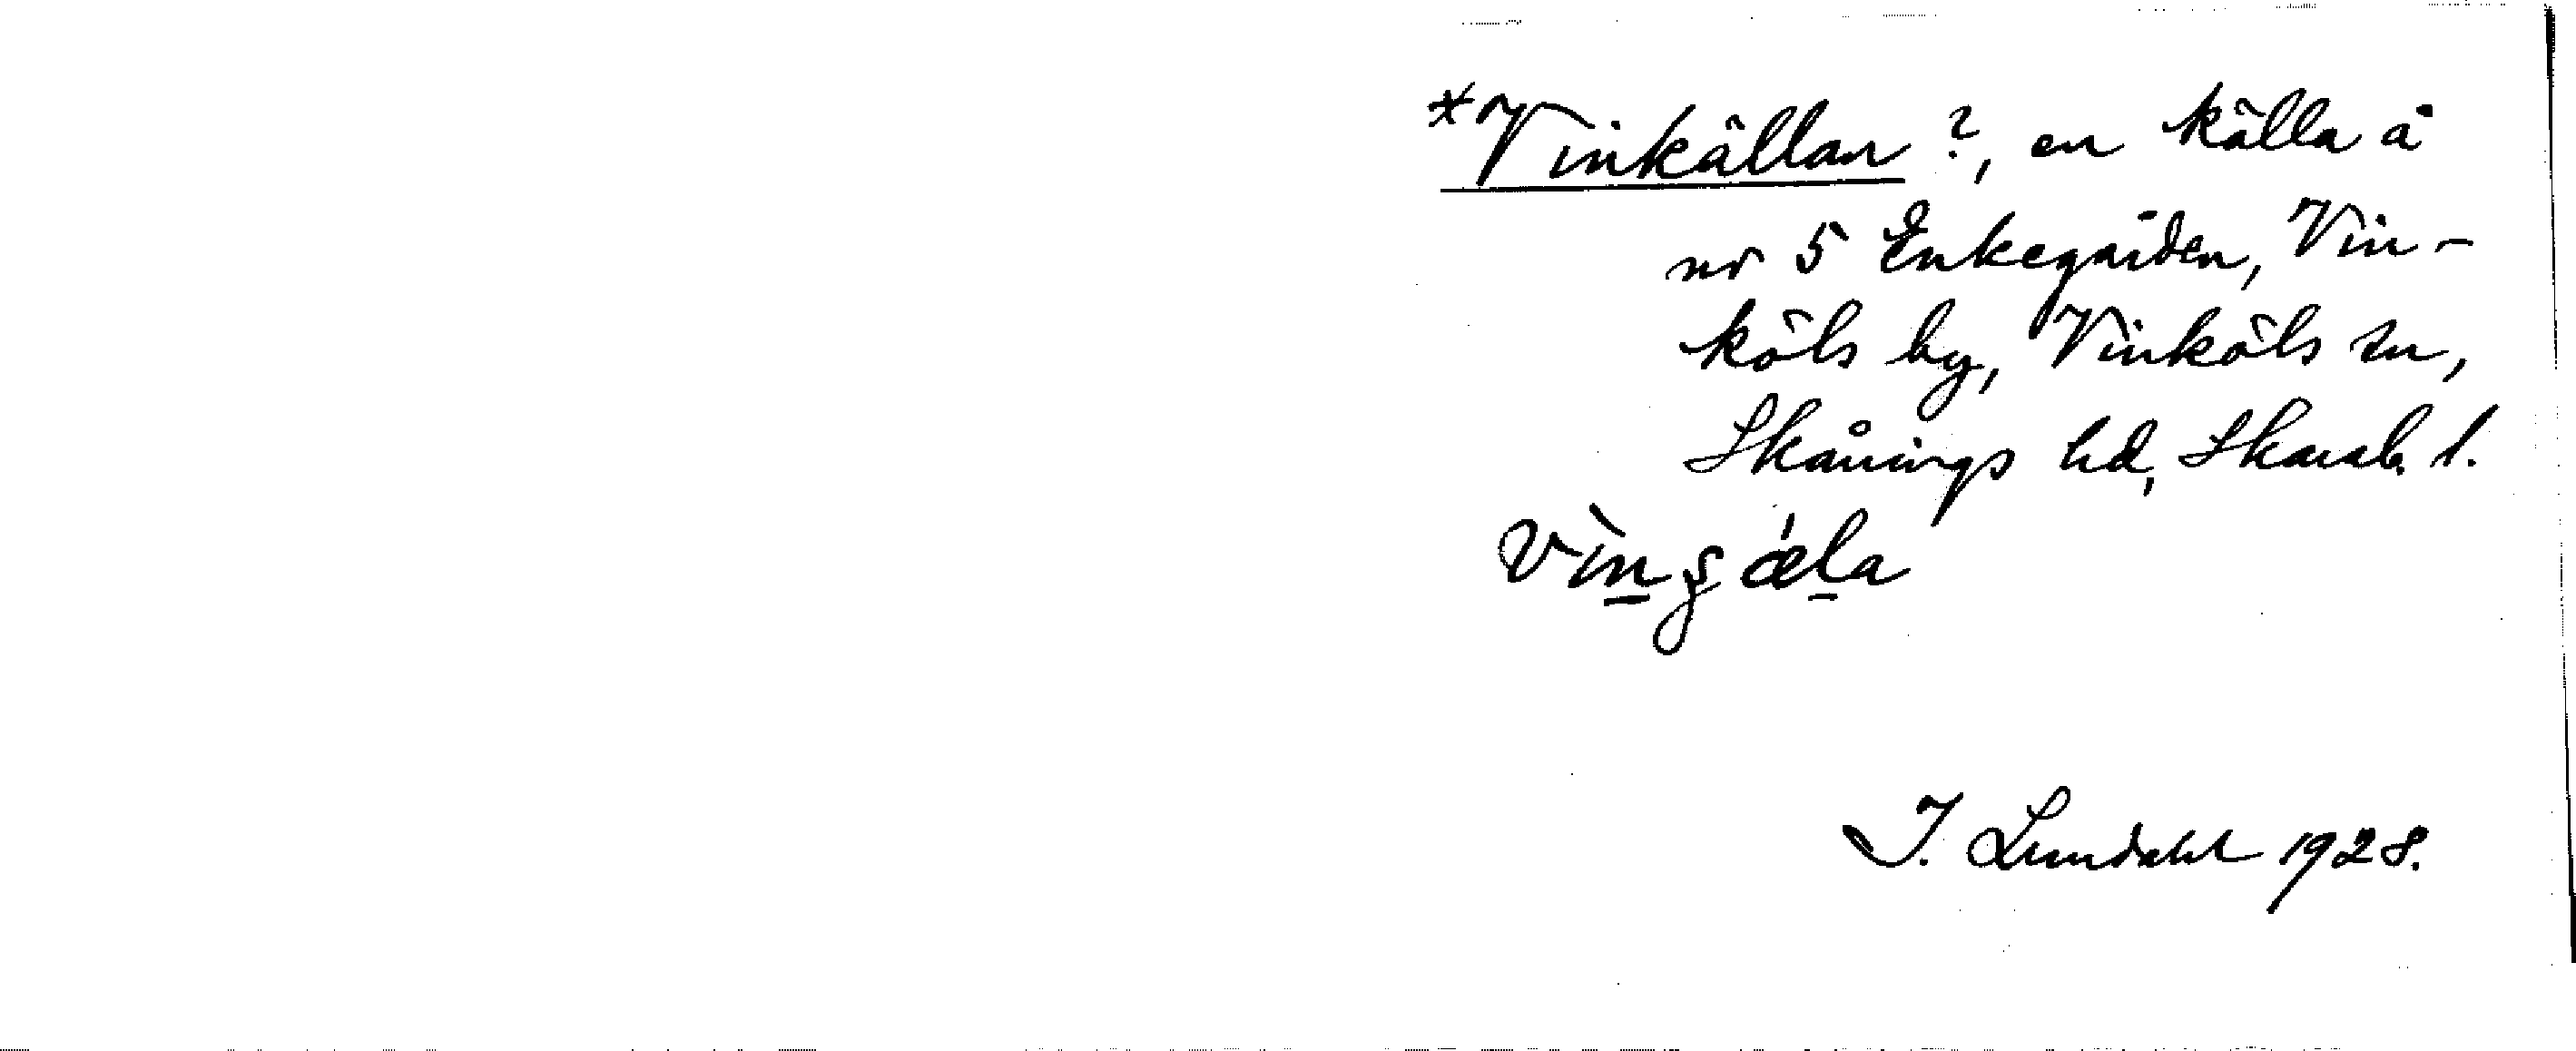 *Vinkällan ?, en källa å
nr 5 Enkegården, Vin-
köls by, Vinköls sn,
Skånings hd, Skarab. l.
I. Lundahl 1928.